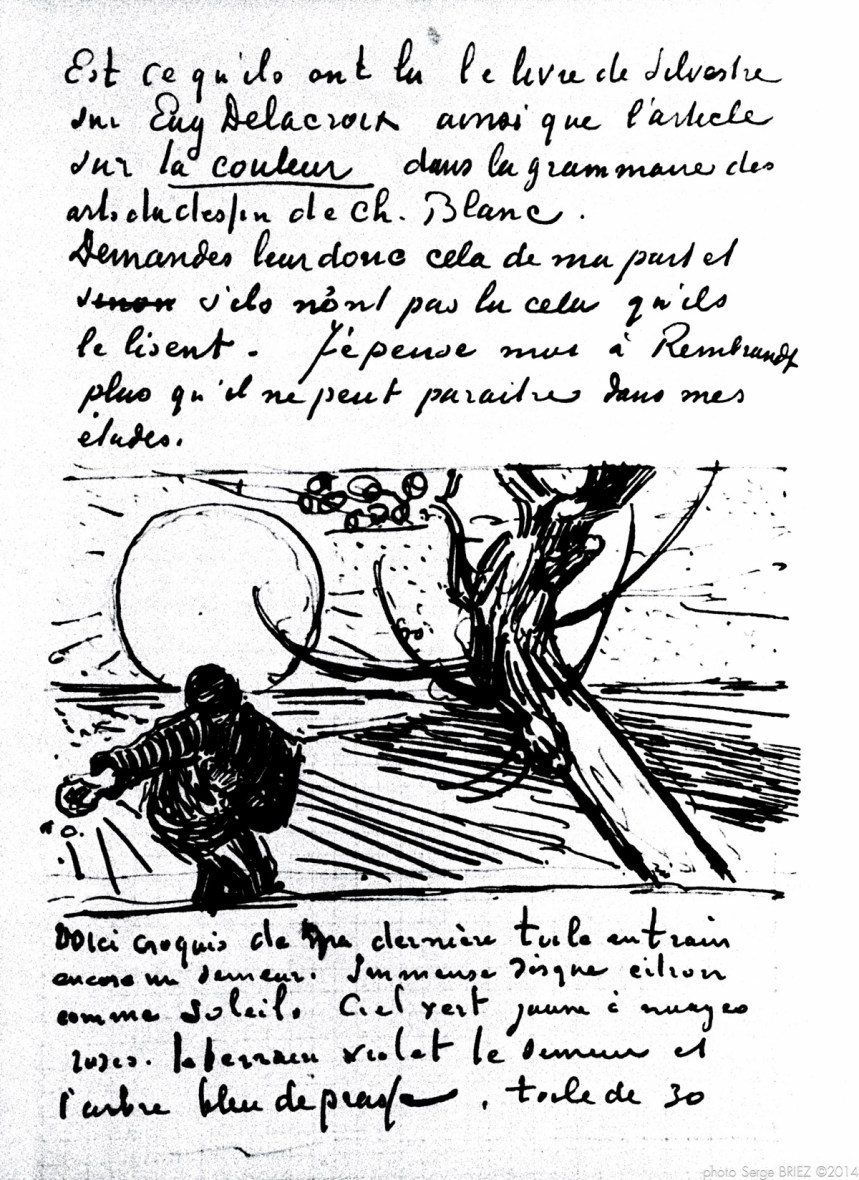 Est ce qu'ils ont lu le livre de Silvestre
sur Eug Delacroix ainsi que l'article
sur la couleur dans la grammaire des
arts du dessin de Ch. Blanc.
Demandes leur donc cela de ma part et
sinon s'ils n'ont pas lu cela qu'ils
le lisent. J'epense moi à Rembrandt
plus qu'il ne peut paraitre dans mes
études.
Voici croquis de ma dernière toile en train
encore un semeur. Immense disque citron
comme soleil. Ciel vert jaune à nuages
roses. le terrain violet le semeur et
l'arbre bleu de prusse. toile de 30
photo Serge BRIEZ ©2014